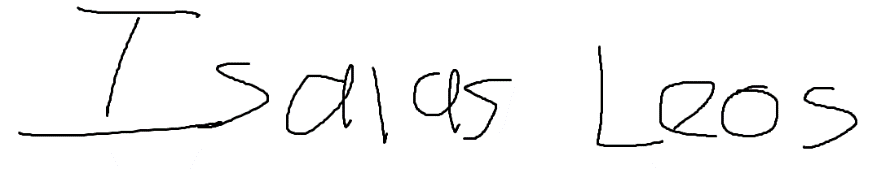 Isaias Leos